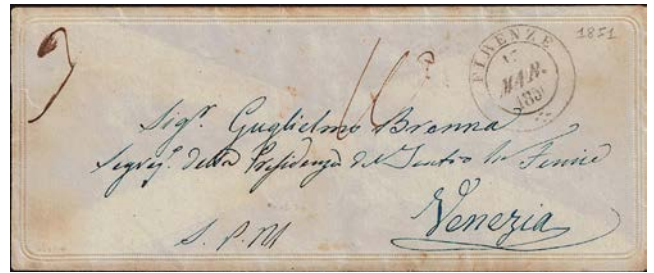 FIRENZE
17
MAR.
1851
1851
16
Sigr. Guglielmo Brenna
Segret. della Presidenza del Teatro la Fenice
Venezia
S. P. M